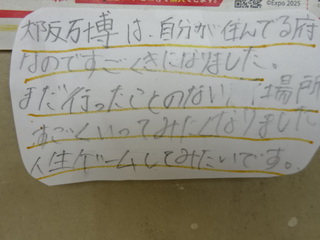 ©Expo 2025
大阪万博は、自分が住んでる府
なのですごくきになりました。
まだ行ったことのない、場所
すごくいってみたくなりました
人生ゲームしてみたいです。